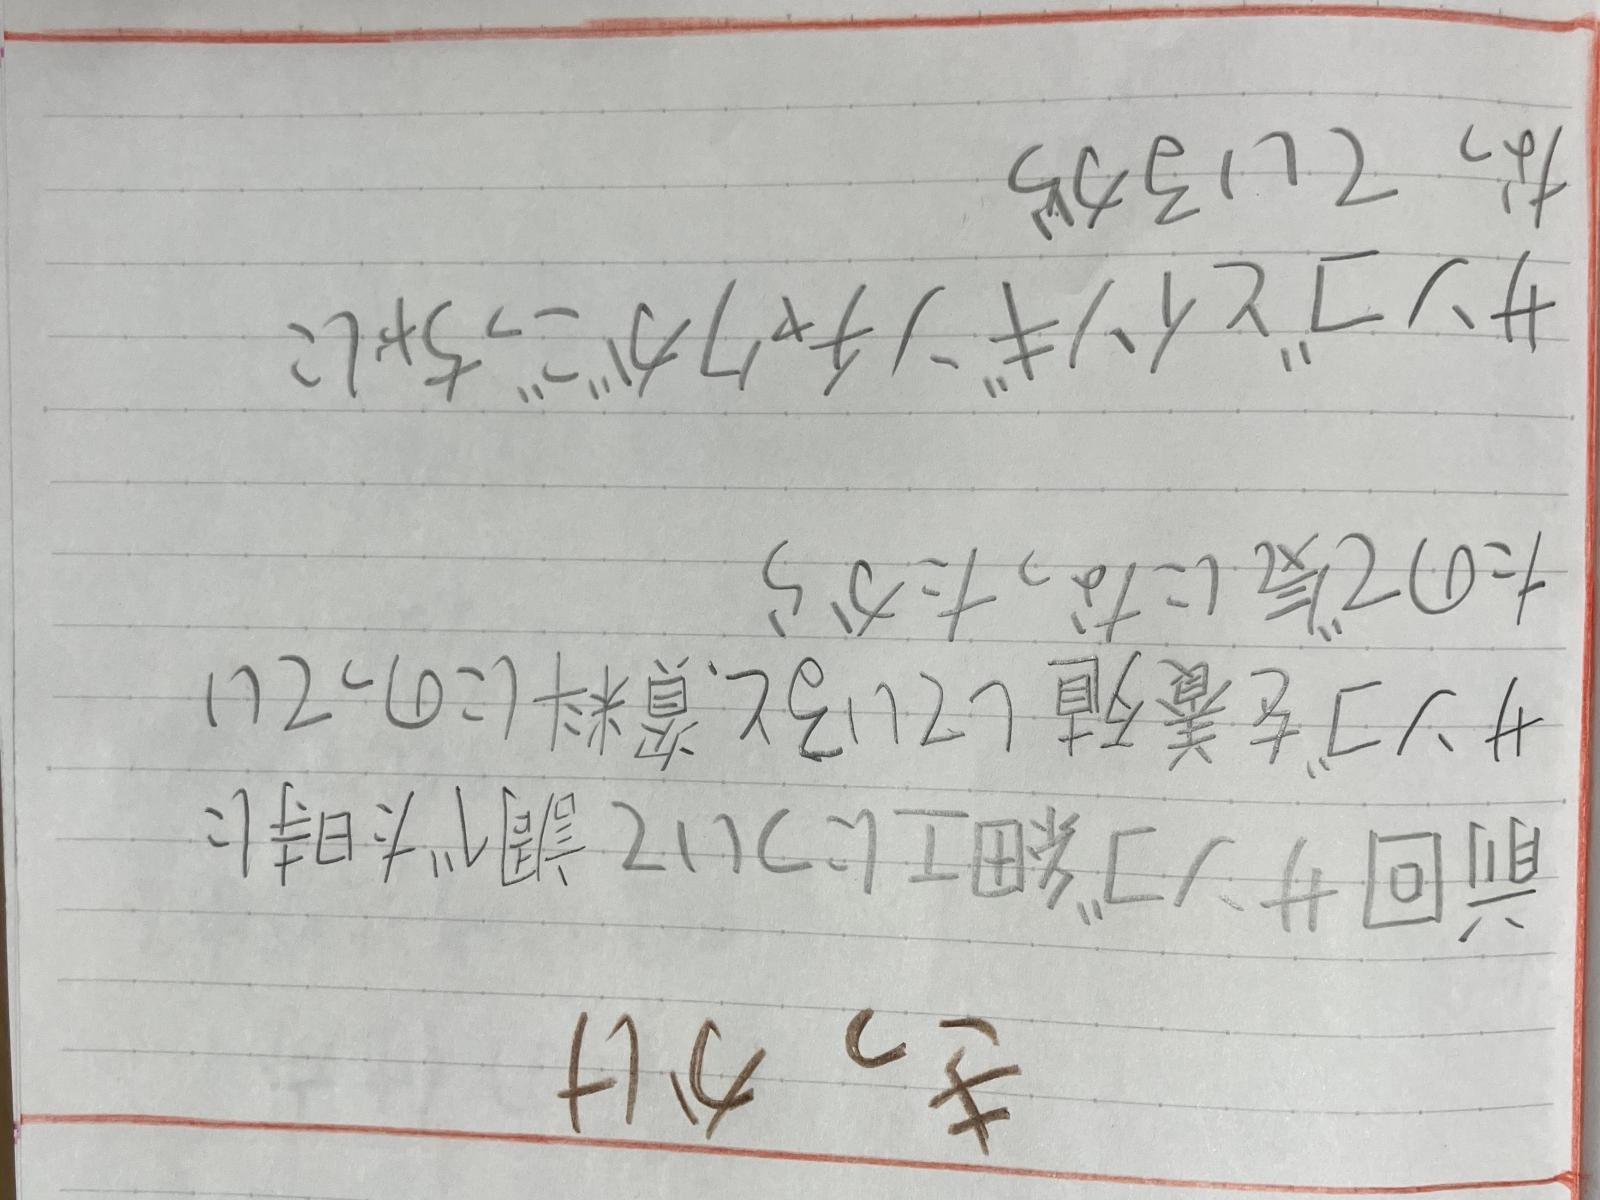 きっかけ
前回サンゴ細工について調べた時に
サンゴを養殖していると、資料にのってい
たので気になったから
サンゴとイソギンチャクがごっちゃに
なっているから